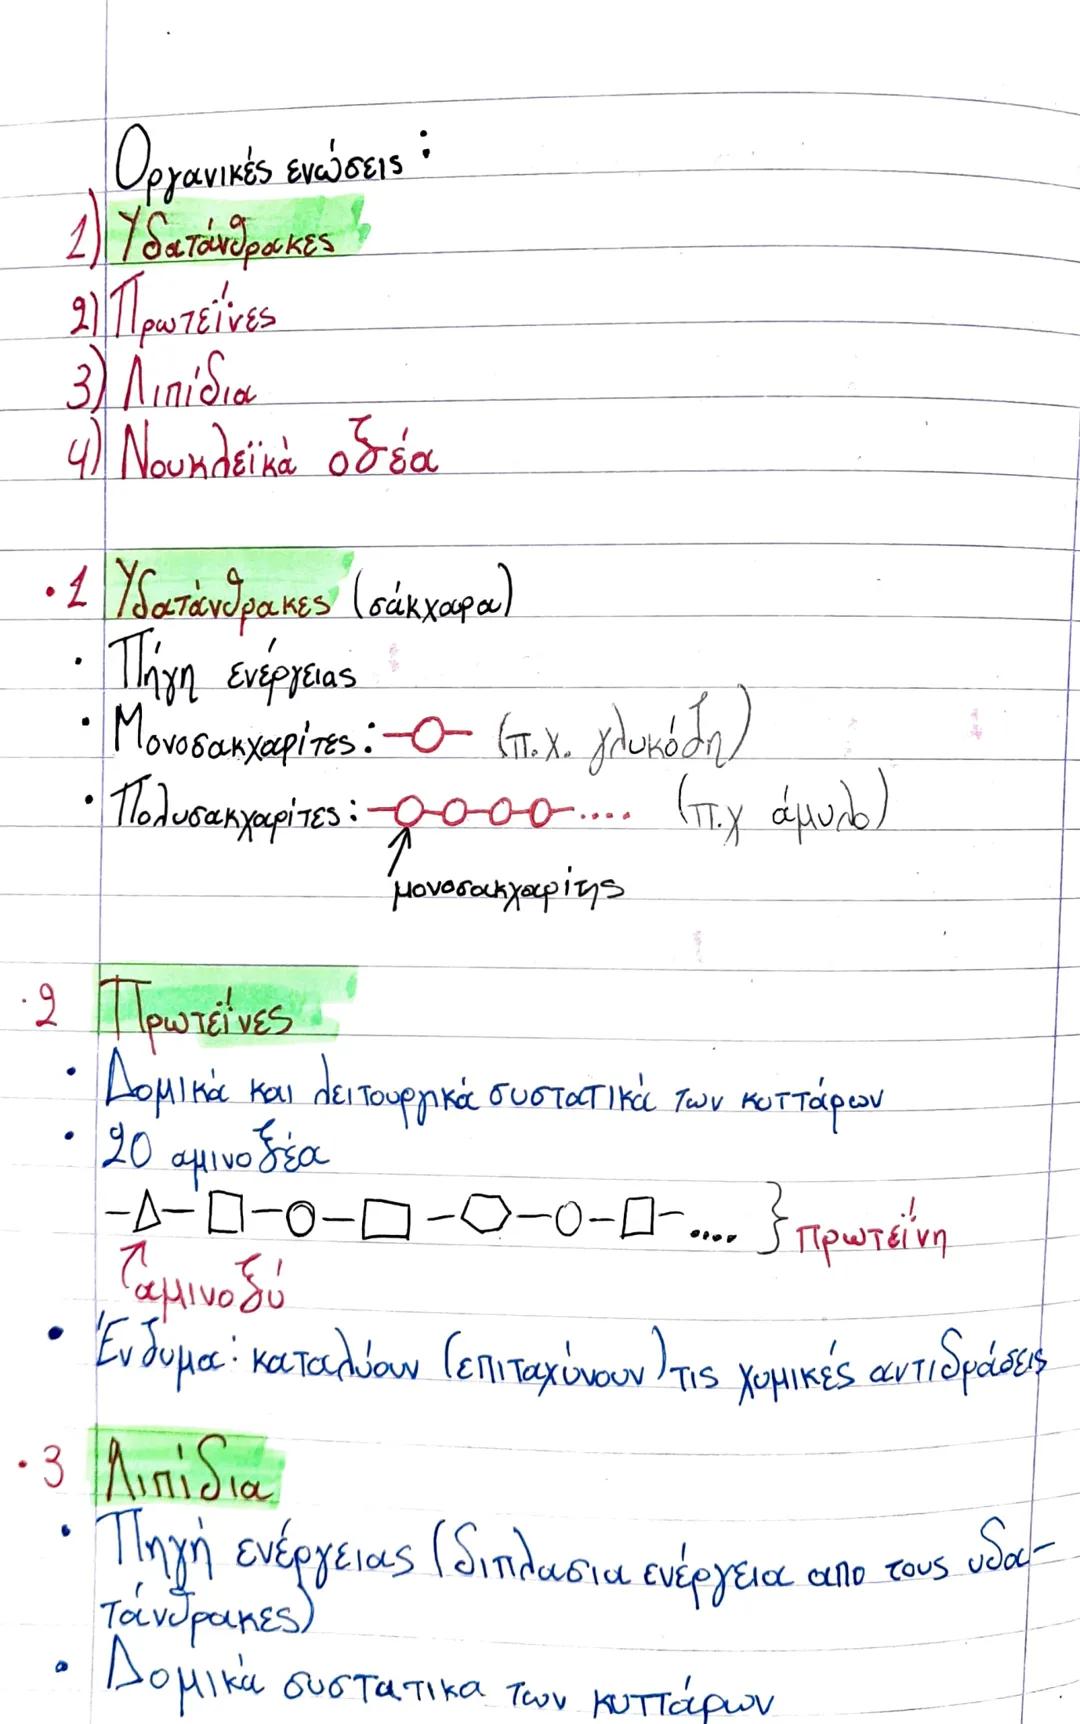 Οργανικές ενώσεις:
1) Υδατάνθρακες
2) Πρωτεΐνες
3) Λιπίδια
4) Νουκλεϊκά οξέα
·1 Υδατάνθρακες (σάκχαρα)
· Πήγη ενέργειας
· Μονοσακχαρίτες: (π.χ. γλυκόζη)
· Πολυσακχαρίτες: .... (π.χ άμυλο)
μονοσακχαρίτης
·2 Πρωτεΐνες
· Δομικά και λειτουργικά συστατικά των κυττάρων
· 20 αμινοξέα
.... } Πρωτεΐνη
αμινοξύ
· Ένζυμα: καταλύουν (επιταχύνουν) τις χυμικές αντιδράσεις
·3 Λιπίδια
· Πηγή ενέργειας (διπλασια ενέργεια απο τους υδα-
τάνθρακες)
· Δομικά συστατικα των κυττάρων